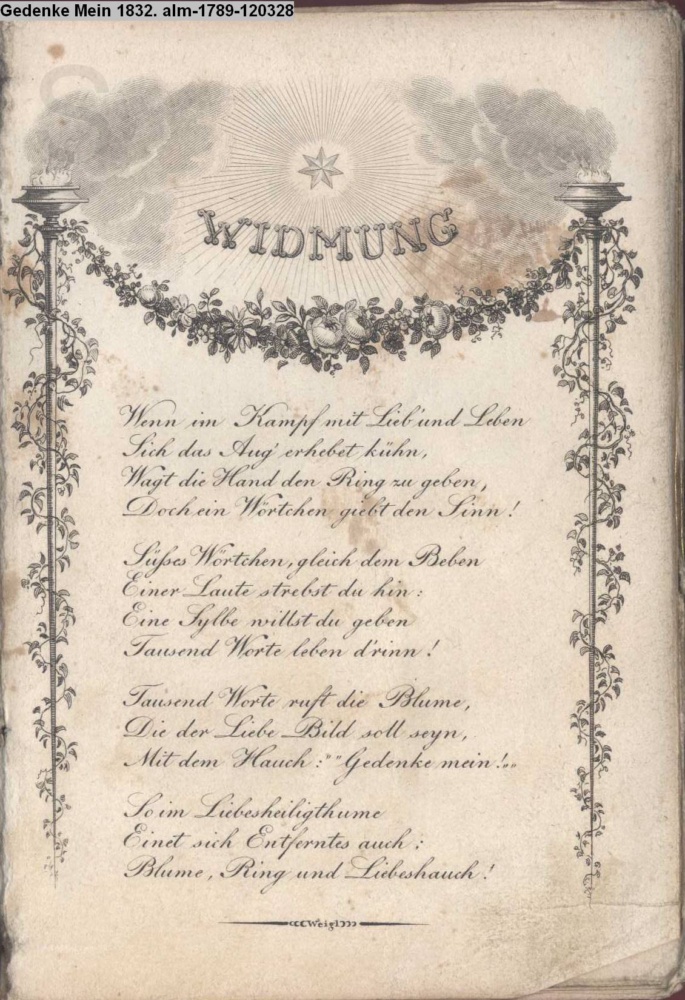 Gedenke Mein 1832. alm-1789-120328
WIDMUNG
Wenn im Kampf mit Lieb' und Leben
Sich das Aug' erhebet kühn,
Wagt die Hand den Ring zu geben,
Doch ein Wörtchen giebt den Sinn!
Süßes Wörtchen, gleich dem Beben
Einer Laute strebst du hin:
Eine Sylbe willst du geben
Tausend Worte leben d'rinn!
Tausend Worte ruft die Blume,
Die der Liebe Bild soll seyn,
Mit dem Hauch: „"Gedenke mein!""
So im Liebesheiligthume
Einet sich Entferntes auch:
Blume, Ring und Liebeshauch!
Weigl